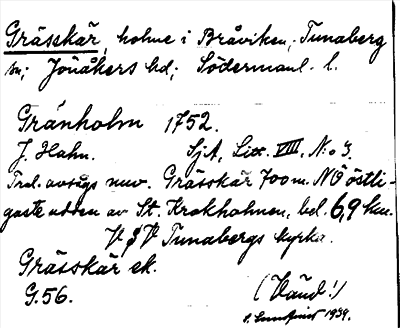 Grässkär, holme i Bråviken, Tunaberg
sn; Jönåkers hd; Södermanl. l.
Gränholm 1752.
J. Hahn. SjA, Litt. VIII, No 3.
Trol. avsågs nuv. Grässkär 700 m. NÖ östli-
gaste udden av St. Krokholmen, bel. 6,9 km.
V Tunabergs kyrka.
Grässkär ek.
G. 56. (Vänd!)
1939.